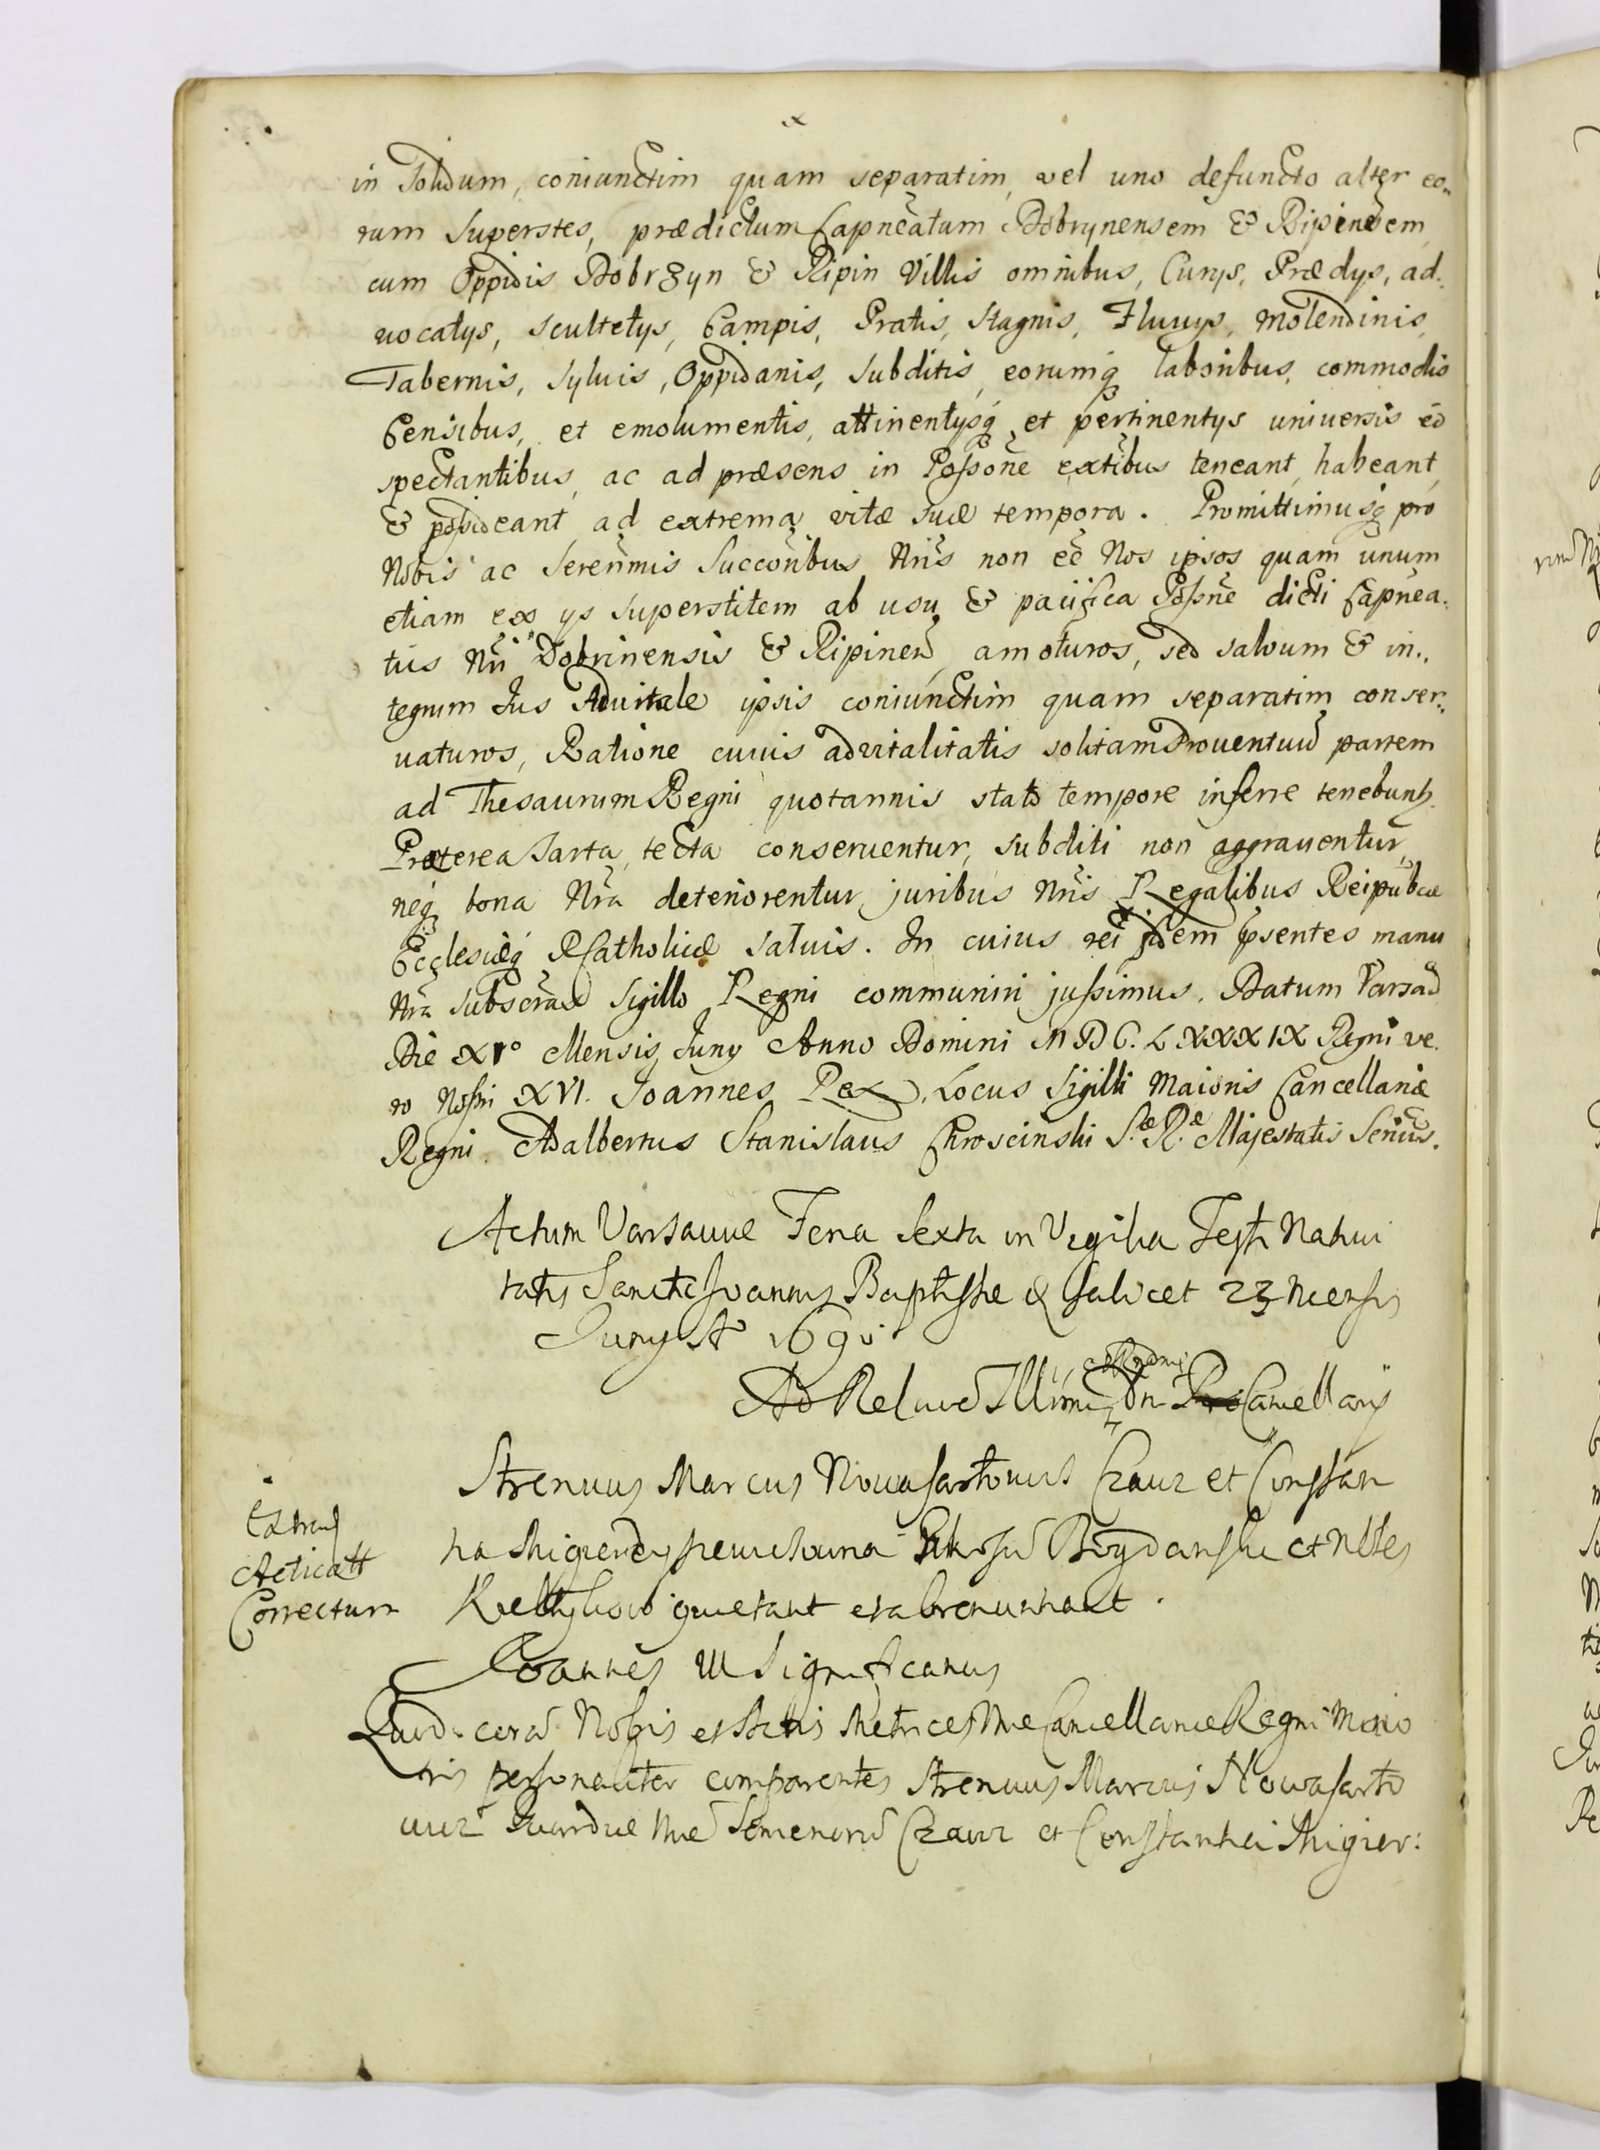 in solidum, coniunctim quam separatim, vel uno defuncto alter eo„
rum superstes, prædictum Capnēatum Dobrynensem & Ripinēsem
cum Oppidis Dobrzyn & Ripin Villis omnibus, Curys, Prædys, ad„
uocatys, scultetys, Campis, Pratis, stagnis, Fluuys, molendinis,
Tabernis, syluis, Oppidanis, subditis, eorumq laboribus, commodis
Censibus, et emolumentis, attinentysq et pertinentys uniuersis eō
spectantibus, ac ad præsens in Possōne extībus teneant, habeant,
& possideant ad extrema vitæ suæ tempora. Promittimusq pro
Nobis ac Serenm̄is Succōribus Nrīs non eē Nos ipsos quam unum
etiam ex ys superstitem ab usu & pacifica Possne dicti Capnēa„
tus Nrī Dobrinensis & Ripinen, amoturos, sed saluum & in„
tegrum Jus Aduitale ipsis coniunctim quam separatim conser„
uaturos, Ratione cuius aduitalitatis solitam Prouentuū partem
ad Thesaurum Regni quotannis stato tempore inferre tenebunt.
Præterea sarta tecta conseruentur, subditi non aggrauentur
neq bona Nrā deteriorentur, juribus Nrīs Regalibus Reipubcæ
Ecclesiæq R Catholicæ saluis. In cuius rei fidem psentes manu
Nrā subscrās Sigillo Regni communiri jussimus. Datum Varsau
Die XVº Mensis Juny Anno Domini MDC. LXXXIX Regni ve„
ro Nostri XVI. Joannes Rex, Locus Sigilli Maioris Cancellariæ
Regni. Adalbertus Stanislaus Chroscinski S.æ R.æ Majestatis Secrius.
Actum Varsauiæ Feria sexta in Vigilia Festi Natiui
tatis Sancti Joannis Baptistæ scilicet 23 mensis
Juny Aº 169
Ad Relnē Illīmi Dn̄i Cancellarij
Strenuus Marcus Nowasartouicz Czauz et Constan
Bogdanski et
quietant et abrenuntiant.
Extrad
Acticatt
Correctum
Joannes III Significamus
Quod cora Nobis et Actis Metrices Nræ Cancellariæ Regni Maio
ris personaliter comparentes Strenuus Marcus Nowasarto
uicz Czauz et Constantia